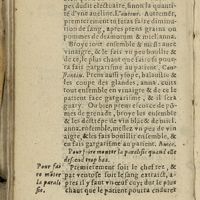 pes dudit electuaire, sinon la quanti-
té d'vne aueline. L'auteur. Autrement,
premierement tu feras faire diminu-
tion de sang, apres prens grains ou
pommes de deamorum & miel. anna.
Broye tout ensemble & mesl' auec
vinaigre, & le fait vn peu bouillir &
de ce, le plus chaut que se pourra en-
faits gargarisme au patient.
Prens aussi ysope, balaustes &
les coupe des glandes, anna. cuits
tout ensemble en vinaigre & de ce le
patient face gargarisme, & il sera
guary. Ou bien pren escorces de pô-
mes de grenade, broye les ensemble
& les destrépe de vin blác & de miel.
anna. ensemble, meslez du vinaigre a-
uec, & les fais bouillir ensemble, &
en fais gargarisme au patient.
Pour faire monter la paralisie quand elle
descend trop bas.
Pour fai
re môter
la parali
sie.
Premierement soit le chesfre, &
par vētouse soit le sang extraict, a-
pres il y faut vn œuf cuyt dur le plus
chaut que le patient pourra endurer